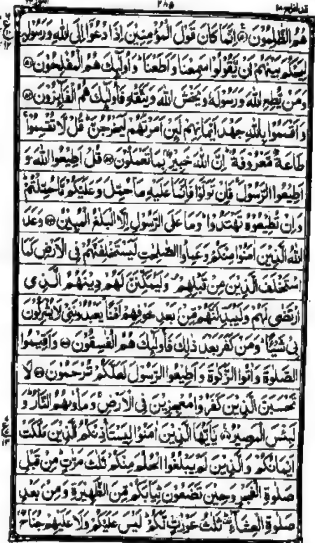 هُمُ الظّٰلِمُوۡنَ ۞ اِنَّمَا كَانَ قَوۡلَ الۡمُؤۡمِنِيۡنَ اِذَا دُعُوۡۤا اِلَى اللّٰهِ وَرَسُوۡلِهٖ
لِيَحۡكُمَ بَيۡنَهُمۡ اَنۡ يَّقُوۡلُوۡا سَمِعۡنَا وَاَطَعۡنَا‌ ؕ وَاُولٰٓئِكَ هُمُ الۡمُفۡلِحُوۡنَ ۞
وَمَنۡ يُّطِعِ اللّٰهَ وَرَسُوۡلَهٗ وَيَخۡشَ اللّٰهَ وَيَتَّقۡهِ فَاُولٰٓئِكَ هُمُ الۡفَآئِزُوۡنَ ۞
وَاَقۡسَمُوۡا بِاللّٰهِ جَهۡدَ اَيۡمَانِهِمۡ لَئِنۡ اَمَرۡتَهُمۡ لَيَخۡرُجُنَّ‌ ؕ قُلْ لَّا تُقۡسِمُوۡا‌ ۚ
طَاعَةٌ مَّعۡرُوۡفَةٌ‌ ؕ اِنَّ اللّٰهَ خَبِيۡرٌۢ بِمَا تَعۡمَلُوۡنَ ۞ قُلۡ اَطِيۡعُوا اللّٰهَ وَ
اَطِيۡعُوا الرَّسُوۡلَ‌ۚ فَاِنۡ تَوَلَّوۡا فَاِنَّمَا عَلَيۡهِ مَا حُمِّلَ وَعَلَيۡكُمۡ مَّا حُمِّلۡتُمۡ‌ؕ
وَاِنۡ تُطِيۡعُوۡهُ تَهۡتَدُوۡا‌ؕ وَمَا عَلَى الرَّسُوۡلِ اِلَّا الۡبَلٰغُ الۡمُبِيۡنُ ۞ وَعَدَ
اللّٰهُ الَّذِيۡنَ اٰمَنُوۡا مِنۡكُمۡ وَعَمِلُوا الصّٰلِحٰتِ لَيَسۡتَخۡلِفَنَّهُمۡ فِى الۡاَرۡضِ كَمَا
اسۡتَخۡلَفَ الَّذِيۡنَ مِنۡ قَبۡلِهِمۡ وَلَيُمَكِّنَنَّ لَهُمۡ دِيۡنَهُمُ الَّذِى
ارۡتَضٰى لَهُمۡ وَلَيُبَدِّلَنَّهُمۡ مِّنۡۢ بَعۡدِ خَوۡفِهِمۡ اَمۡنًا‌ ؕ يَعۡبُدُوۡنَنِىۡ لَا يُشۡرِكُوۡنَ
بِىۡ شَيۡــًٔــا‌ ؕ وَمَنۡ كَفَرَ بَعۡدَ ذٰ لِكَ فَاُولٰٓئِكَ هُمُ الۡفٰسِقُوۡنَ ۞ وَاَقِيۡمُوا
الصَّلٰوةَ وَاٰ تُوا الزَّكٰوةَ وَاَطِيۡـعُوا الرَّسُوۡلَ لَعَلَّكُمۡ تُرۡحَمُوۡنَ ۞ لَا
تَحۡسَبَنَّ الَّذِيۡنَ كَفَرُوۡا مُعۡجِزِيۡنَ فِى الۡاَرۡضِ‌ۚ وَمَاۡوٰٮهُمُ النَّارُ‌ؕ وَ
لَبِئۡسَ الۡمَصِيۡرُ ۞ يٰۤاَيُّهَا الَّذِيۡنَ اٰمَنُوۡا لِيَسۡتَاۡذِنۡكُمُ الَّذِيۡنَ مَلَكَتۡ
اَيۡمَانُكُمۡ وَالَّذِيۡنَ لَمۡ يَـبۡلُغُوا الۡحُـلُمَ مِنۡكُمۡ ثَلٰثَ مَرّٰتٍ‌ؕ مِنۡ قَبۡلِ
صَلٰوةِ الۡفَجۡرِ وَحِيۡنَ تَضَعُوۡنَ ثِيَابَكُمۡ مِّنَ الظَّهِيۡرَةِ وَمِنۡۢ بَعۡدِ
صَلٰوةِ الۡعِشَآءِ‌ ؕ ثَلٰثُ عَوۡرٰتٍ لَّـكُمۡ‌ ؕ لَـيۡسَ عَلَيۡكُمۡ وَلَا عَلَيۡهِمۡ جُنَاحٌۢ